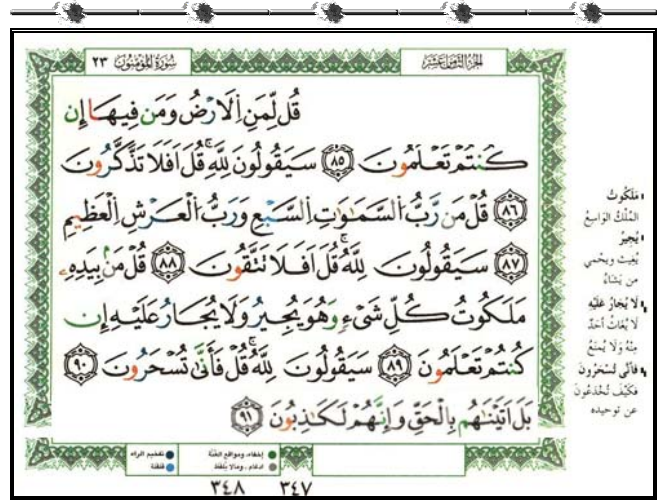 سُورَةُ المُؤْمِنُونَ ٢٣
الجُزْءُ الثَّامِنَ عَشَرَ
قُل لِّمَنِ اِ۬لَارْضُ وَمَن فِيهَا إِن
كُنتُمْ تَعْلَمُونَ ٨٥ سَيَقُولُونَ لِلَّهِۚ قُلَ اَفَلَا تَذَّكَّرُونَ
٨٦ قُلْ مَن رَّبُّ اُ۬لسَّمَٰوَٰتِ اِ۬لسَّبْعِ وَرَبُّ اُ۬لْعَرْشِ اِ۬لْعَظِيمِ
٨٧ سَيَقُولُونَ لِلَّهِۚ قُلَ اَفَلَا تَتَّقُونَ ٨٨ قُلْ مَنۢ بِيَدِهِۦ
مَلَكُوتُ كُلِّ شَيْءٍ وَهُوَ يُجِيرُ وَلَا يُجَارُ عَلَيْهِ إِن
كُنتُمْ تَعْلَمُونَ ٨٩ سَيَقُولُونَ لِلَّهِۚ قُلْ فَأَنَّىٰ تُسْحَرُونَ ٩٠
بَلَ اَتَيْنَٰهُم بِالْحَقِّ وَإِنَّهُمْ لَكَٰذِبُونَ ٩١
مَلَكُوتُ
المُلْكُ الوَاسِعُ
يُجِيرُ
يُغِيثُ ويَحْمِي
من يَشَاءُ
لا يُجَارُ عَلَيْهِ
لا يُغَاثُ أَحَدٌ
مِنْهُ وَلَا يُمْنَعُ
فَأَنَّى تُسْحَرُونَ
فَكَيْفَ تُخْدَعُونَ
عن توحيده
إخفاء، ومواقع الغُنَّة
ادغام، ومالا يُلفَظ
تفخيم الراء
قلقلة
٣٤٨ ٣٤٧